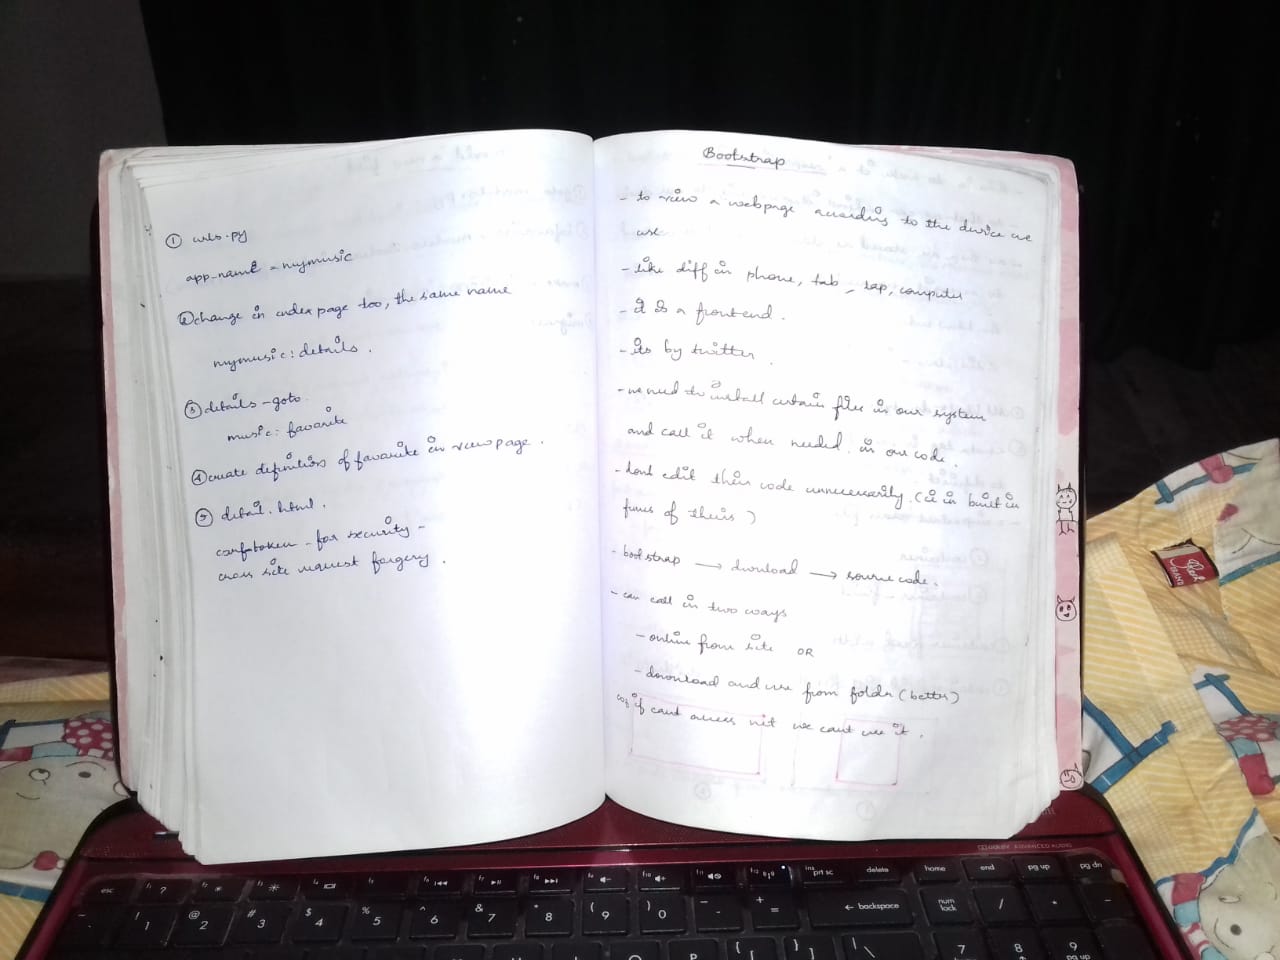 ① urls.py
app_name = mymusic
② change in index page too, the same name
mymusic : details .
③ details - goto
music : favorite
④ create definition of favorite in view page .
⑤ detail . html .
csrf-token - for security -
cross site request forgery .
Bootstrap
- to view a webpage according to the device we
use
- like diff in phone, tab, lap, computer
- It is a frontend .
- its by twitter .
- we need to install certain files in our system
and call it when needed in our code .
- dont edit their code unnecessarily . ( in built in
funcs of theirs )
- bootstrap → download → source code .
- can call in two ways
- online from site OR
- download and use from folder (better)
coz if cant access net we cant use it .
DOLBY ADVANCED AUDIO
esc f1 ? f2 f3 f4 f5 f6 f7 f8 f9 f10 f11 f12 ins prt sc delete home end pg up pg dn
! 1 @ 2 # 3 $ 4 % 5 ^ 6 & 7 * 8 ( 9 ) 0 _ - + = ← backspace num lock / * -
{ [ } ] | \ 7 8 9 pg up